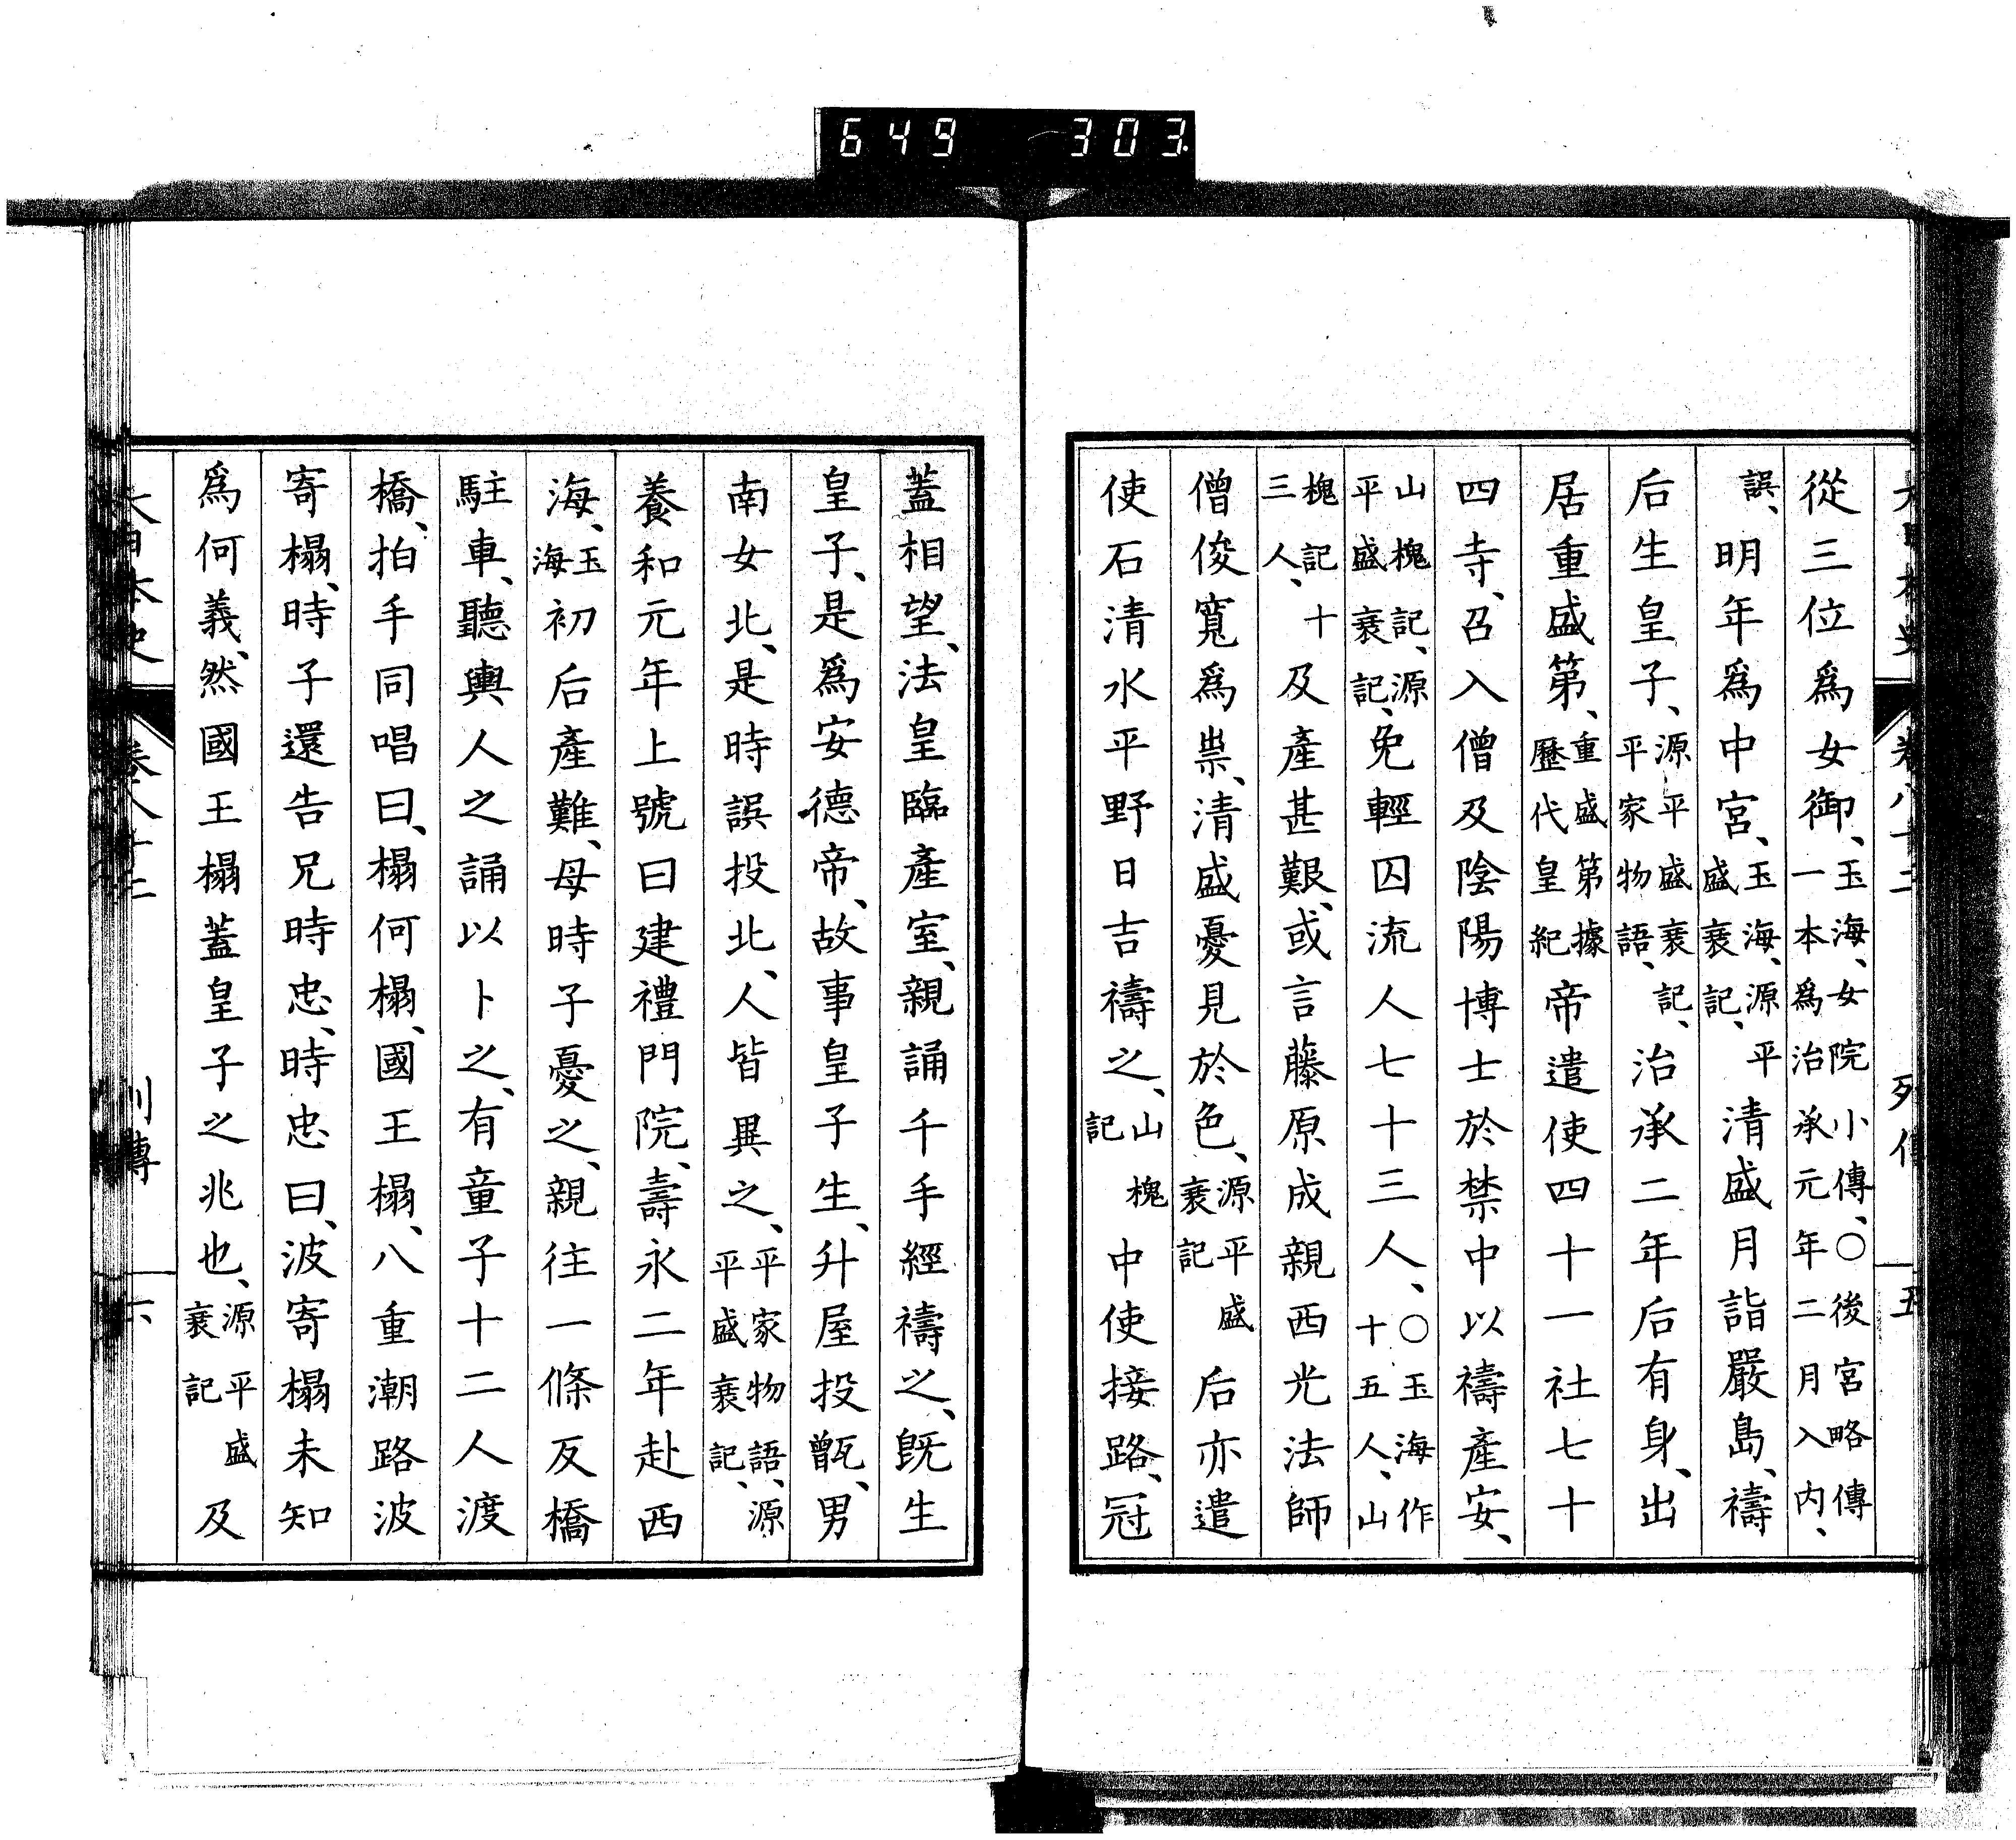 649 303
大日本史 卷八十二 列傳 五
從三位爲女御、玉海、女院小傳、〇後宮略傳一本爲治承元年二月入内、
誤、明年爲中宮、玉海、源平盛衰記、清盛月詣嚴島、禱
后生皇子、源平盛衰記、平家物語、治承二年后有身、出
居重盛第、重盛第據歷代皇紀帝遣使四十一社七十
四寺、召入僧及陰陽博士於禁中以禱產安、
山槐記、源平盛衰記、免輕囚流人七十三人、〇玉海作十五人、山
槐記十三人、及產甚艱、或言藤原成親西光法師
僧俊寬爲祟、清盛憂見於色、源平盛衰記后亦遣
使石清水平野日吉禱之、山槐記中使接路、冠
蓋相望、法皇臨產室、親誦千手經禱之、既生
皇子、是爲安德帝、故事皇子生、升屋投甑、男
南女北、是時誤投北、人皆異之、平家物語、源平盛衰記、
養和元年上號曰建禮門院、壽永二年赴西
海、玉海初后產難、母時子憂之、親往一條反橋
駐車、聽輿人之誦以卜之、有童子十二人渡
橋、拍手同唱曰、榻何榻、國王榻、八重潮路波
寄榻、時子還告兄時忠、時忠曰、波寄榻未知
爲何義、然國王榻蓋皇子之兆也、源平盛衰記及
大日本史 卷八十二 列傳 六